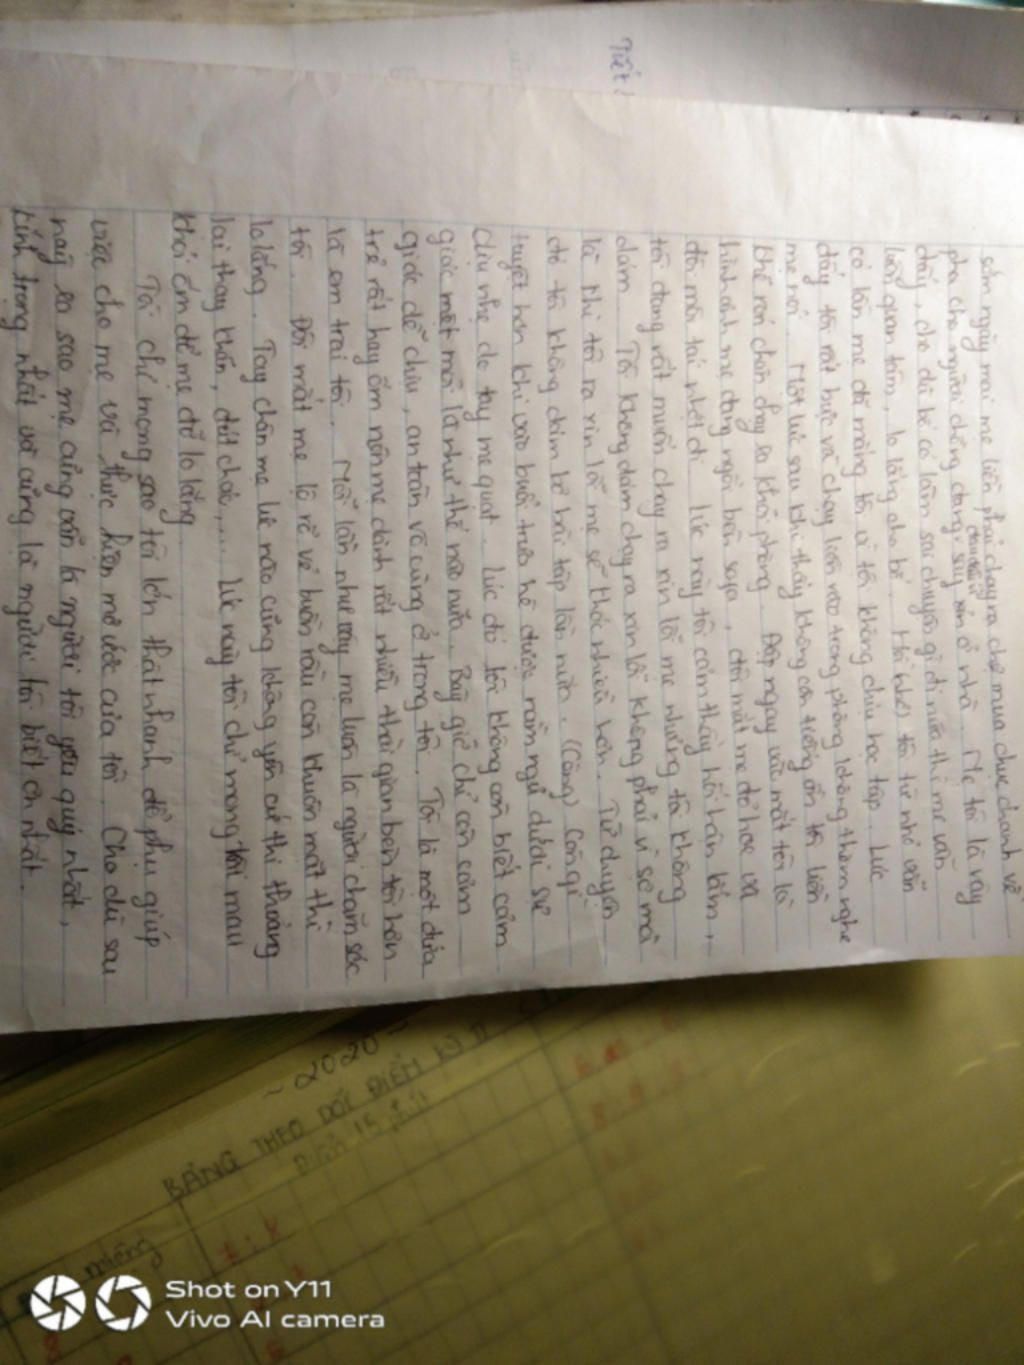 sớm ngày mai mẹ liền phải chạy ra chợ mua chục chanh về
pha cho người chồng đang say xỉn ở nhà. Mẹ tôi là vậy
đấy, cho dù bố có làm sai chuyện gì đi nữa thì mẹ vẫn
luôn quan tâm, lo lắng cho bố. tôi từ nhỏ vốn
có lần mẹ đã mắng tôi vì tôi không chịu học tập. Lúc
đấy tôi rất bực và chạy luôn vào trong phòng không thèm nghe
mẹ nói. Một lúc sau khi thấy không còn tiếng ồn tôi liền
khẽ rón chân chạy ra khỏi phòng. Đập ngay vào mắt tôi là
hình ảnh mẹ đang ngồi bên sopa, đôi mắt mẹ đỏ hoe và
đôi môi tái nhợt đi. Lúc này tôi cảm thấy hối hận lắm,
tôi đang rất muốn chạy ra xin lỗi mẹ nhưng tôi không
dám. Tôi không dám chạy ra xin lỗi không phải vì sợ mà
là khi tôi ra xin lỗi mẹ sẽ khóc nhiều hơn. Từ chuyện
đó tôi không dám bỏ bài tập lần nữa. (Cũng) Còn gì
tuyệt hơn khi vào buổi trưa hè được nằm ngủ dưới sự
dịu nhẹ do tay mẹ quạt. Lúc đó tôi không còn biết cảm
giác mệt mỏi là như thế nào nữa. Bây giờ chỉ còn cảm
giác dễ chịu, an toàn vô cùng ở trong tôi. Tôi là một đứa
trẻ rất hay ốm nên mẹ dành rất nhiều thời gian bên tôi hơn
là em trai tôi. Mỗi lần như vậy mẹ luôn là người chăm sóc
tôi. Đôi mắt mẹ lộ rõ vẻ buồn rầu còn khuôn mặt thì
lo lắng. Tay chân mẹ lúc nào cũng không yên cứ thi thoảng
lại thay khăn, đút cháo,... Lúc này tôi chỉ mong tôi mau
khỏi ốm để mẹ đỡ lo lắng
Tôi chỉ mong sao tôi lớn thật nhanh để phụ giúp
việc cho mẹ và thực hiện mơ ước của tôi. Cho dù sau
này ra sao mẹ cũng vẫn là người tôi yêu quý nhất,
kính trọng nhất và cũng là người tôi biết ơn nhất.
Tiết
~ 2020 ~
BẢNG THEO DÕI ĐIỂM KỲ II
Điểm 15 phút
miệng
Shot on Y11
Vivo AI camera